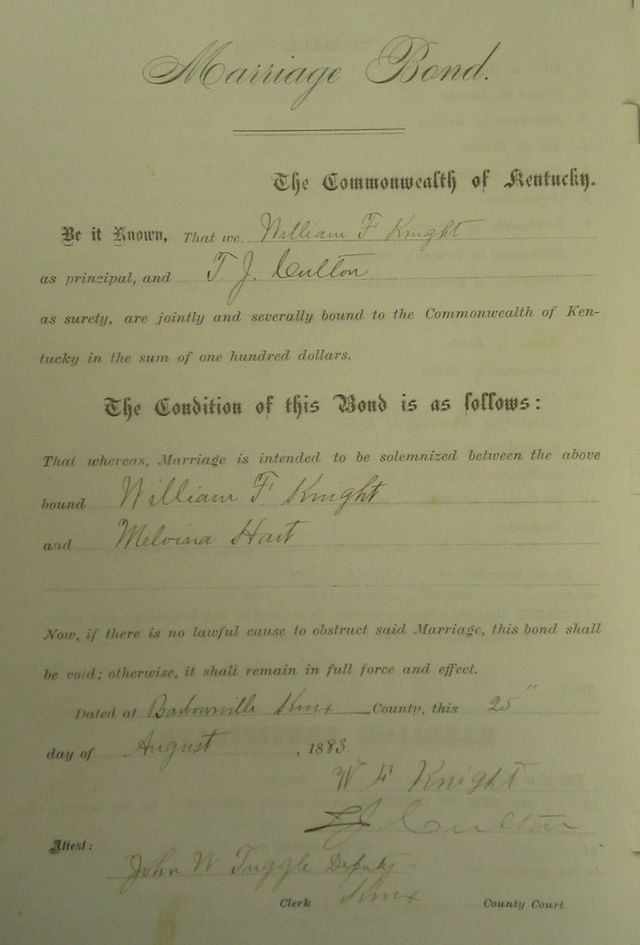 Marriage Bond.
The Commonwealth of Kentucky.
Be it Known, That we William F Knight
as principal, and T J. Culton
as surety, are jointly and severally bound to the Commonwealth of Ken-
tucky in the sum of one hundred dollars.
The Condition of this Bond is as follows:
That whereas, Marriage is intended to be solemnized between the above
bound William F Knight
and Melvina Hart
Now, if there is no lawful cause to obstruct said Marriage, this bond shall
be void; otherwise, it shall remain in full force and effect.
Dated at Barbourville Knox County, this 25"
day of August, 1883
W F Knight
T J Culton
Attest:
John W Tuggle Deputy
Clerk Knox County Court.